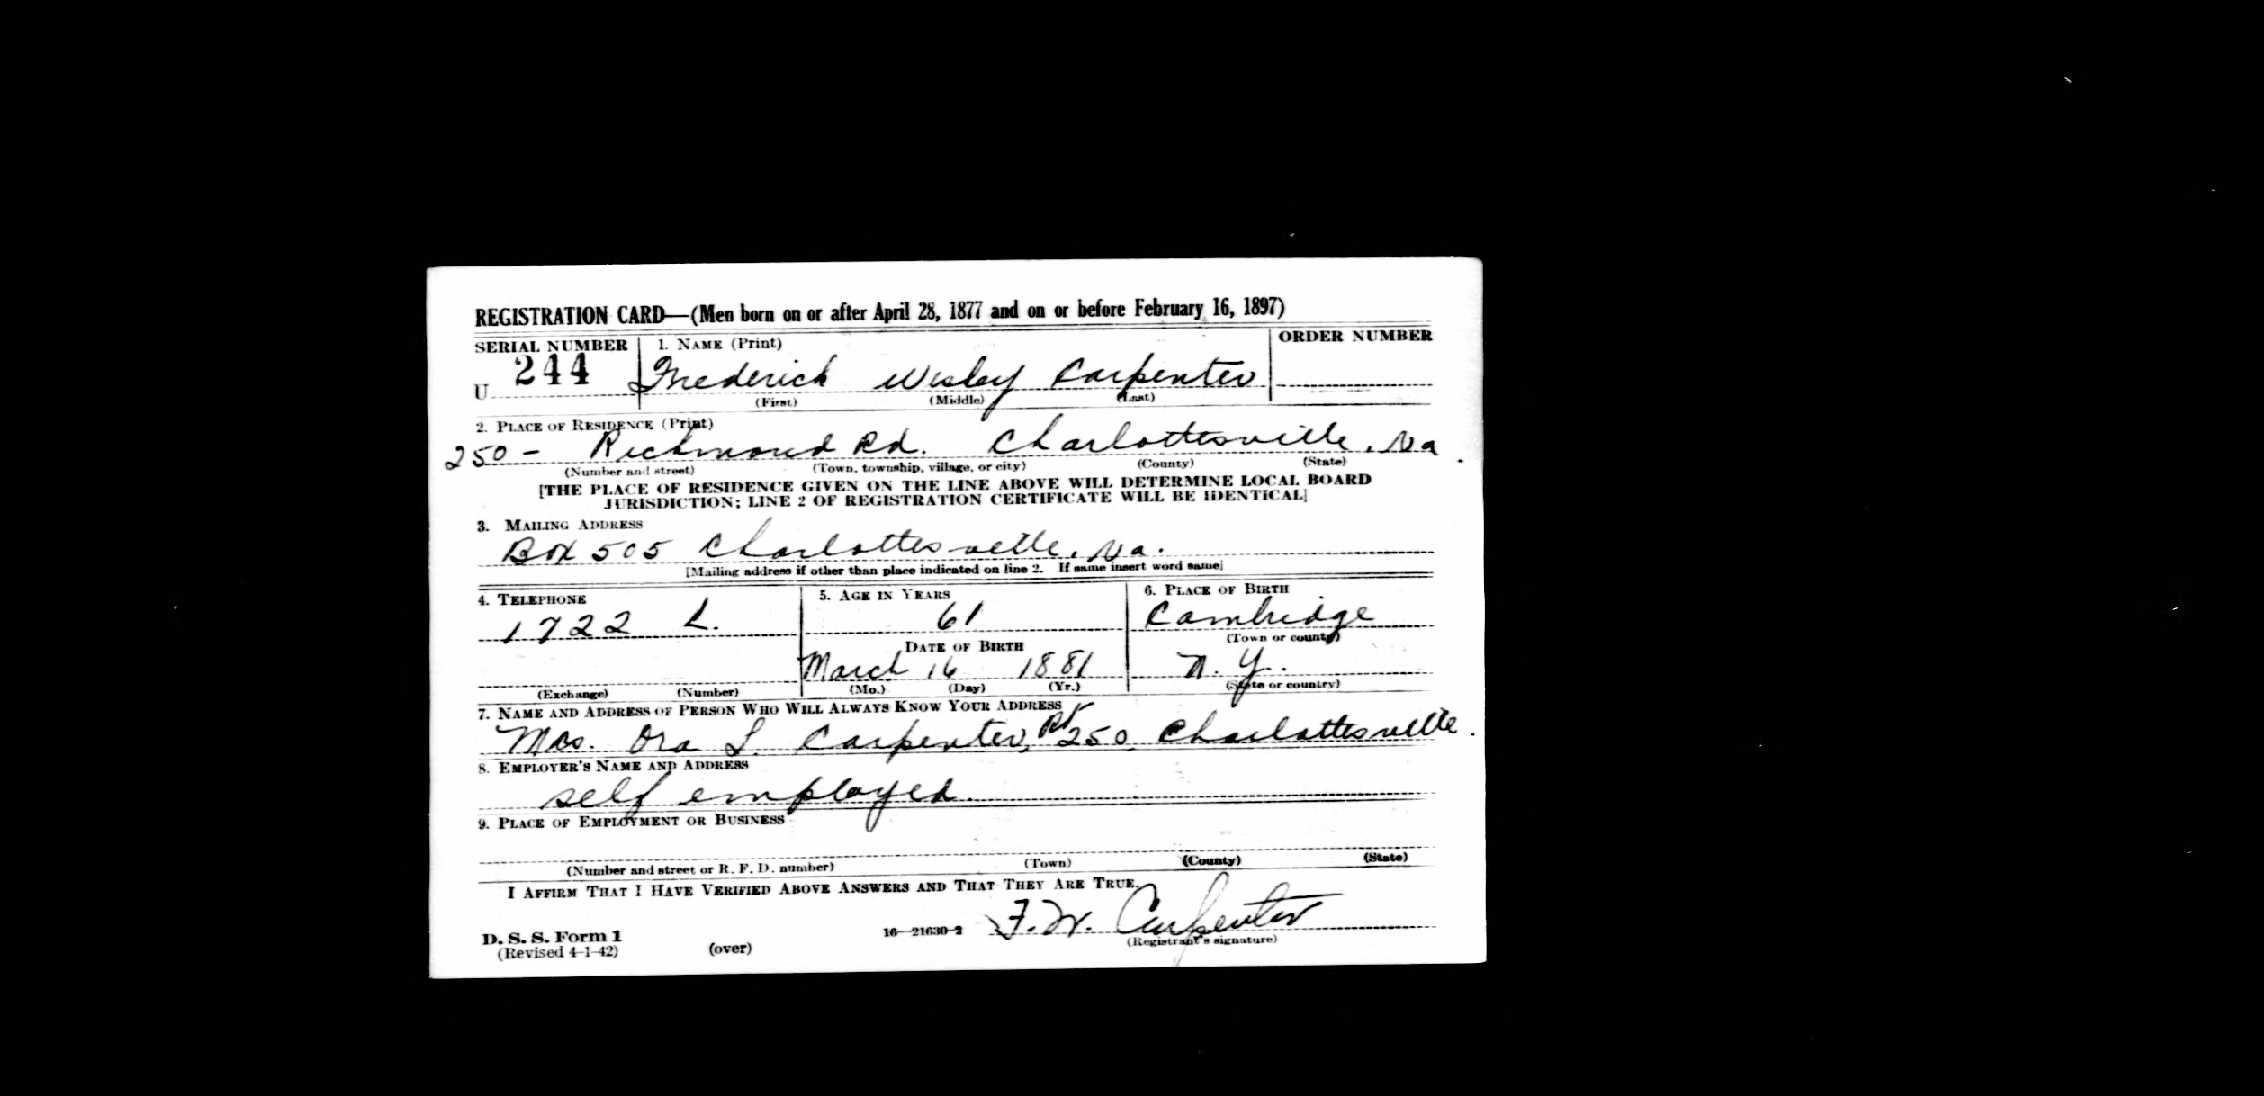 REGISTRATION CARD—(Men born on or after April 28, 1877 and on or before February 16, 1897)
SERIAL NUMBER 1. NAME (Print) ORDER NUMBER
U 244 Frederick Wesley Carpenter
(First) (Middle) (Last)
2. PLACE OF RESIDENCE (Print)
250 - Richmond Rd. Charlottesville, Va.
(Number and street) (Town, township, village, or city) (County) (State)
[THE PLACE OF RESIDENCE GIVEN ON THE LINE ABOVE WILL DETERMINE LOCAL BOARD
JURISDICTION; LINE 2 OF REGISTRATION CERTIFICATE WILL BE IDENTICAL]
3. MAILING ADDRESS
Box 505 Charlottesville, Va.
[Mailing address if other than place indicated on line 2. If same insert word same]
4. TELEPHONE 5. AGE IN YEARS 6. PLACE OF BIRTH
1722 L. 61 Cambridge
DATE OF BIRTH (Town or county)
March 16 1881 N. Y.
(Exchange) (Number) (Mo.) (Day) (Yr.) (State or country)
7. NAME AND ADDRESS OF PERSON WHO WILL ALWAYS KNOW YOUR ADDRESS
Mrs. Ora L. Carpenter, Rt 250, Charlottesville.
8. EMPLOYER'S NAME AND ADDRESS
self employed
9. PLACE OF EMPLOYMENT OR BUSINESS
(Number and street or R. F. D. number) (Town) (County) (State)
I AFFIRM THAT I HAVE VERIFIED ABOVE ANSWERS AND THAT THEY ARE TRUE.
F. W. Carpenter
D. S. S. Form 1 16—21630-2 (Registrant's signature)
(Revised 4-1-42) (over)